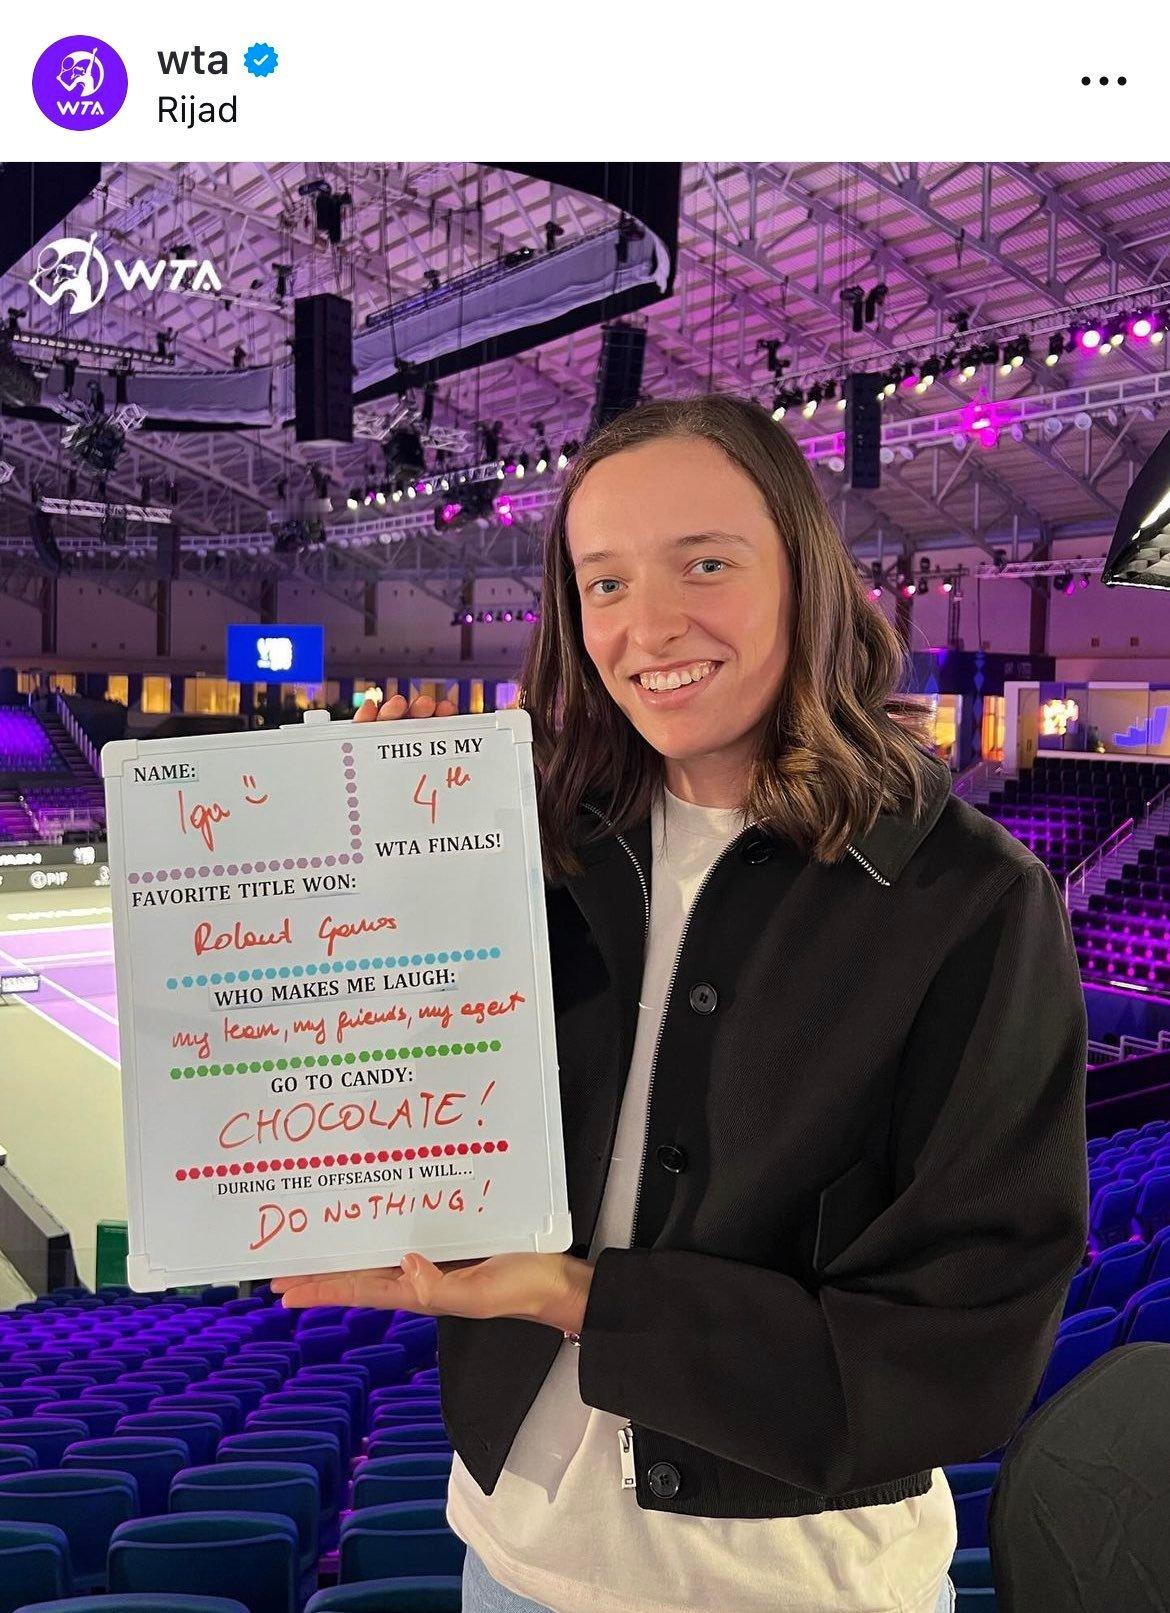 wta
Rijad
WTA
WTA
NAME:
Iga
THIS IS MY
4th
WTA FINALS!
FAVORITE TITLE WON:
Roland Garros
WHO MAKES ME LAUGH:
my team, my friends, my agent
GO TO CANDY:
CHOCOLATE!
DURING THE OFFSEASON I WILL...
DO NOTHING!
PIF